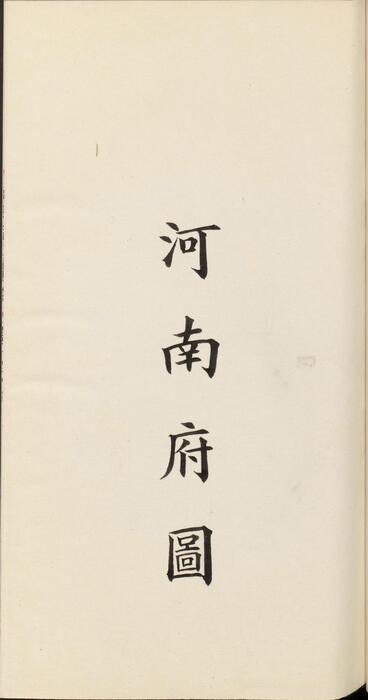 河南府圖